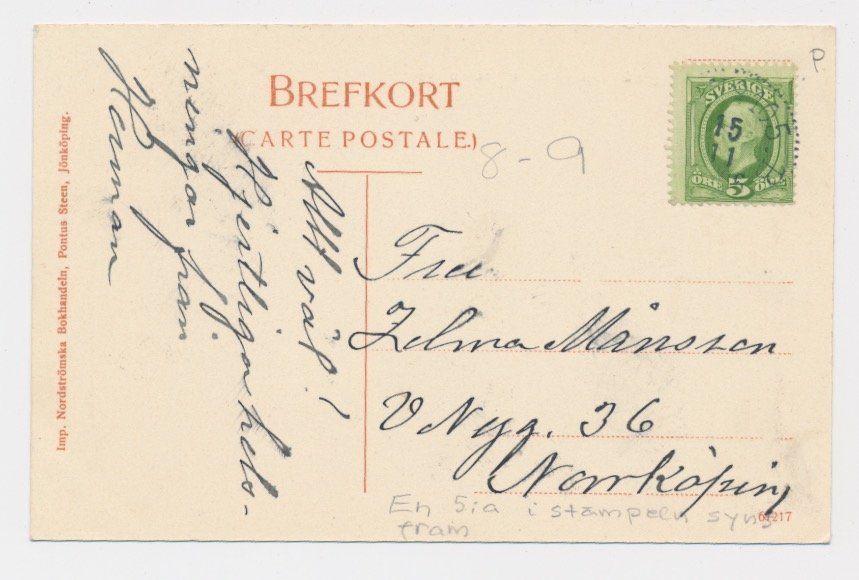 BREFKORT
(CARTE POSTALE.)
Allt väl!
Hjertliga hels-
ningar från
Herman
Imp. Nordströmska Bokhandeln, Pontus Steen, Jönköping.
8-9
P
SVERIGE
ÖRE 5 ÖRE
15
11
Fru
Zelma Månsson
V Nyg. 36
Norrköping
En 5:a i stämpeln syns
fram
61217